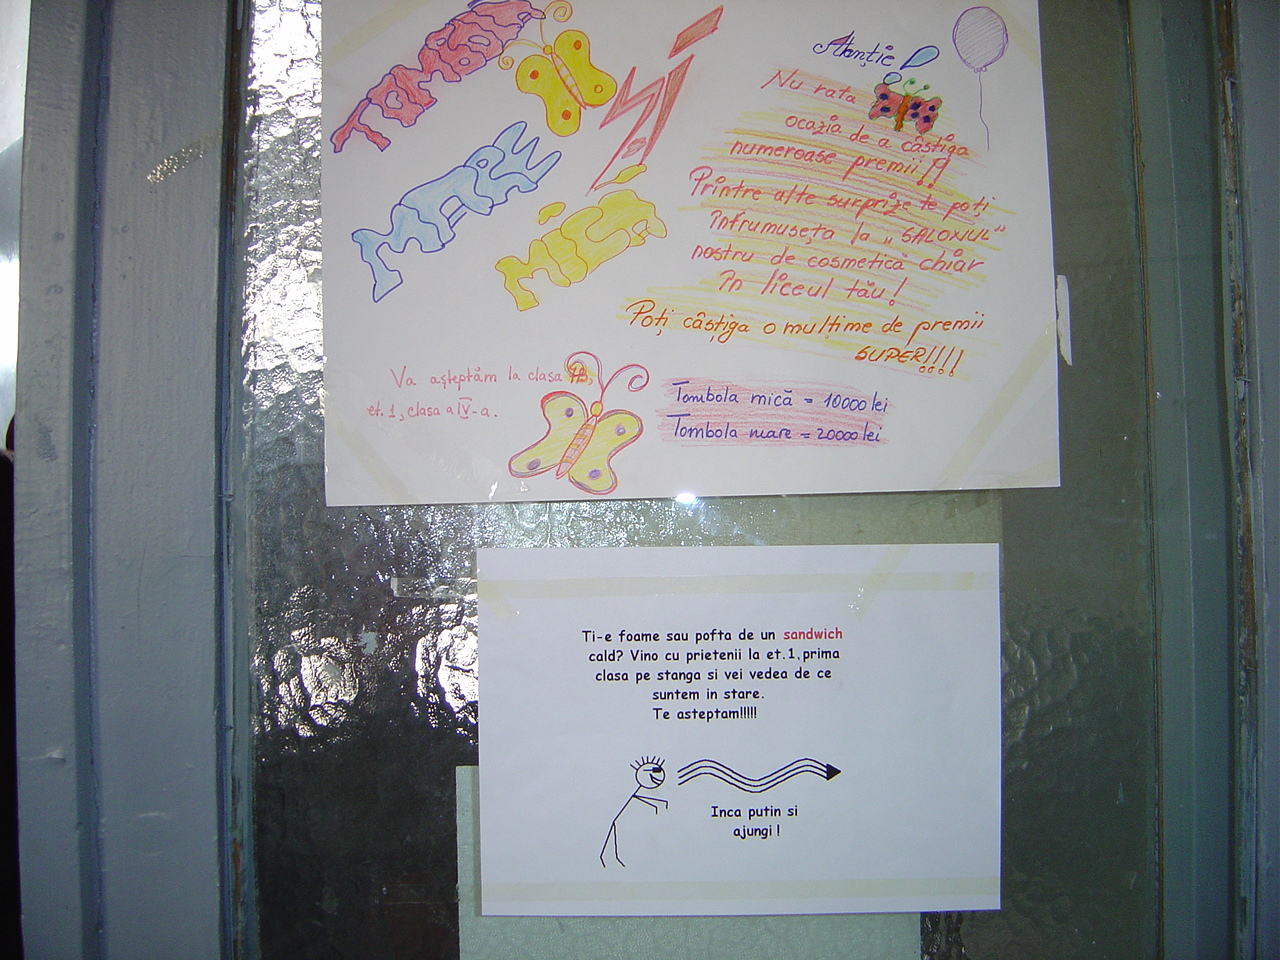 TOMBOLA
MARE
ŞI
MICĂ
Atenţie!
Nu rata
ocazia de a câştiga
numeroase premii!!
Printre alte surprize te poţi
înfrumuseţa la „SALONUL"
nostru de cosmetică chiar
în liceul tău!
Poţi câştiga o mulţime de premii
SUPER!!!!
Va aşteptăm la clasa
et. 1, clasa a IV-a.
Tombola mică = 10000 lei
Tombola mare = 20000 lei
Ti-e foame sau pofta de un sandwich
cald? Vino cu prietenii la et.1,prima
clasa pe stanga si vei vedea de ce
suntem in stare.
Te asteptam!!!!!
Inca putin si
ajungi !